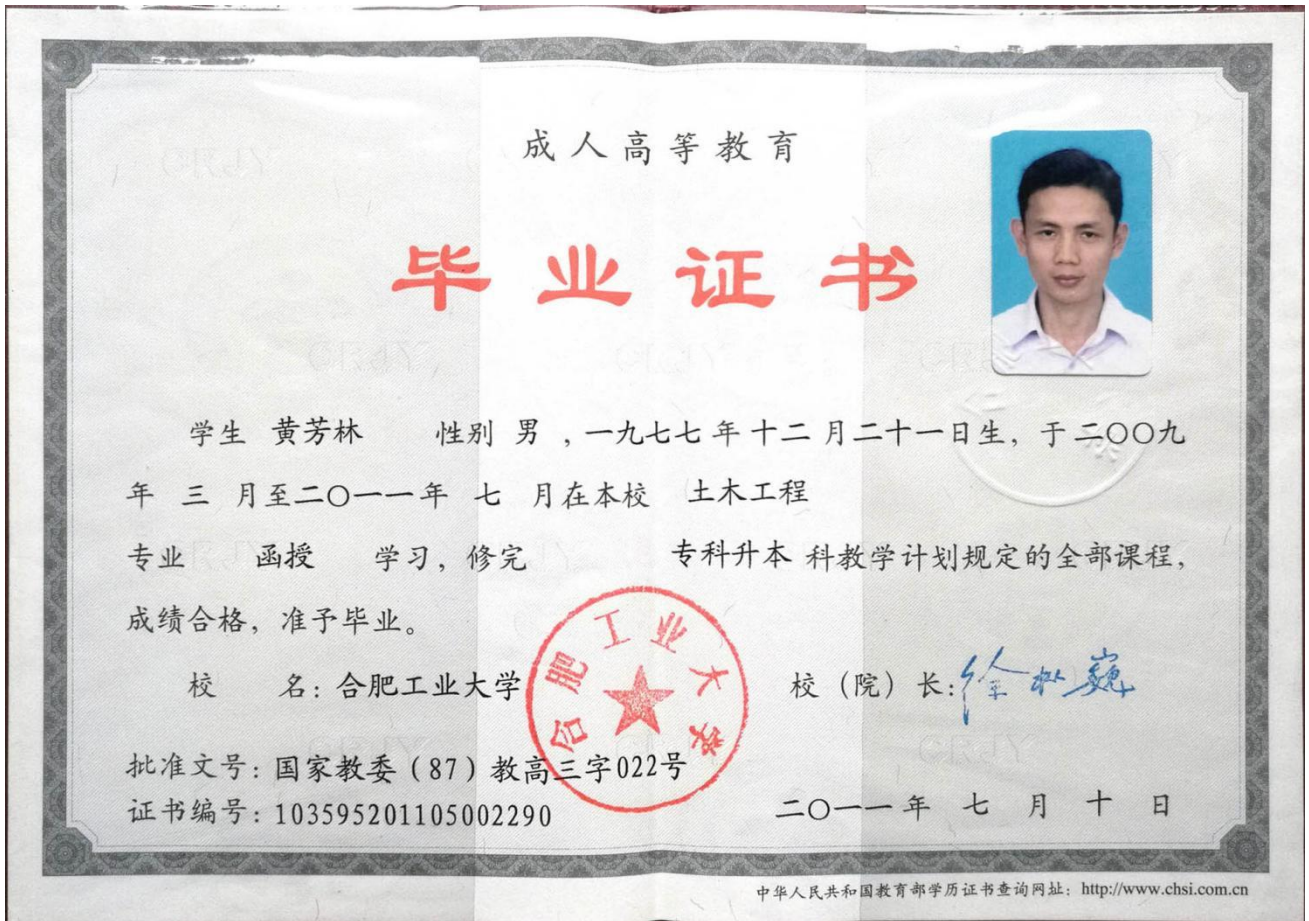 成人高等教育
毕业证书
学生 黄芳林 性别 男 ，一九七七 年 十二 月二十一日生，于 二〇〇九
年 三 月至二〇一一年 七 月在本校 土木工程
专业 函授 学习，修完 专科升本 科教学计划规定的全部课程，
成绩合格，准予毕业。
校 名：合肥工业大学
合肥工业大学
校（院）长：徐枞巍
批准文号：国家教委（87）教高三字022号
证书编号：103595201105002290
二〇一一年 七 月 十 日
中华人民共和国教育部学历证书查询网址：http://www.chsi.com.cn